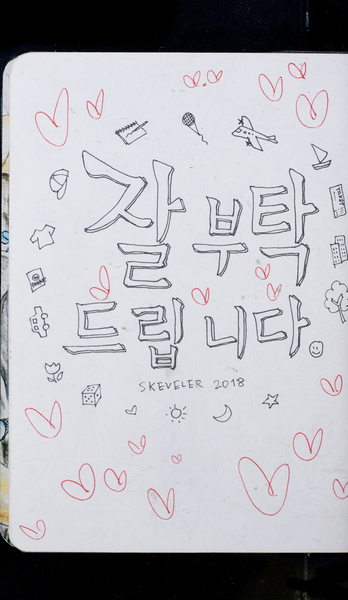 잘 부탁
드립니다
SKEVELER 2018